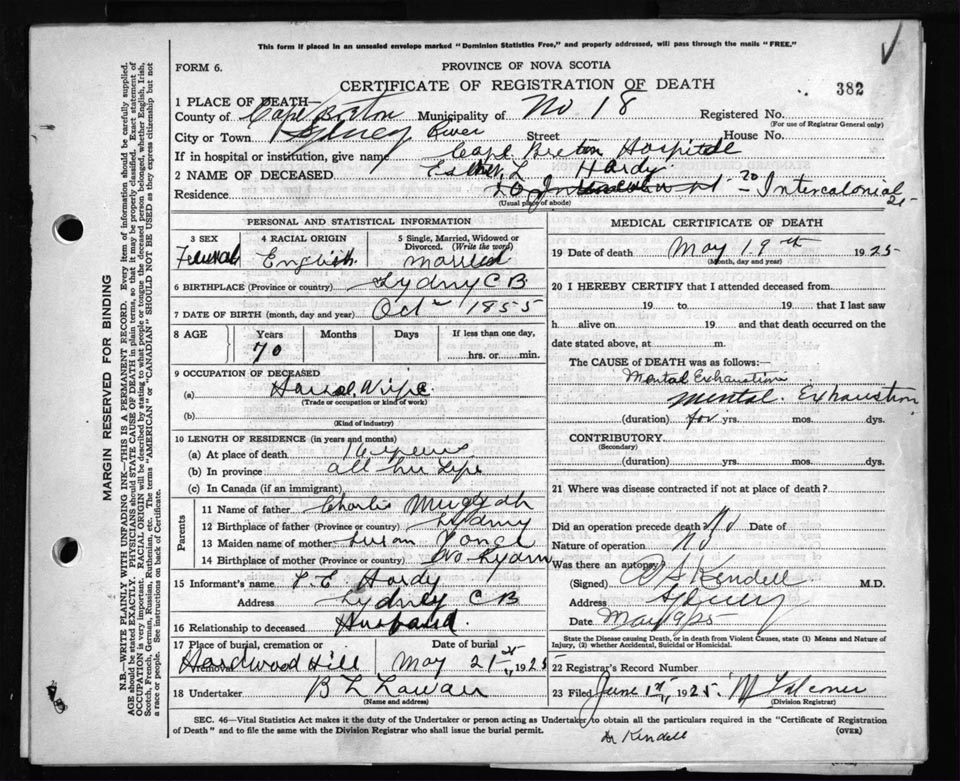 This form if placed in an unsealed envelope marked "Dominion Statistics Free," and properly addressed, will pass through the mails "FREE."
FORM 6.
PROVINCE OF NOVA SCOTIA
CERTIFICATE OF REGISTRATION OF DEATH
382
1 PLACE OF DEATH—
County of Cape Breton Municipality of No 18 Registered No.
(For use of Registrar General only)
City or Town Sydney River Street House No.
If in hospital or institution, give name Cape Breton Hospital
2 NAME OF DECEASED. Esther L Hardy
Residence 20 – 20 Intercolonial st
(Usual place of abode)
PERSONAL AND STATISTICAL INFORMATION
3 SEX Female
4 RACIAL ORIGIN English
5 Single, Married, Widowed or Divorced. (Write the word) married
6 BIRTHPLACE (Province or country) Sydney C B
7 DATE OF BIRTH (month, day and year) Oct 1855
8 AGE Years Months Days If less than one day,
70 hrs. or min.
9 OCCUPATION OF DECEASED
(a) House Wife
(Trade or occupation or kind of work)
(b)
(Kind of industry)
10 LENGTH OF RESIDENCE (in years and months)
(a) At place of death years
(b) In province all her Life
(c) In Canada (if an immigrant)
Parents
11 Name of father Charles
12 Birthplace of father (Province or country) Sydney
13 Maiden name of mother Susan
14 Birthplace of mother (Province or country) No Sydney
15 Informant's name Hardy
Address Sydney C B
16 Relationship to deceased Husband.
17 Place of burial, cremation or removal Date of burial
Hardwood Hill May 21st 1925
18 Undertaker B L
(Name and address)
MEDICAL CERTIFICATE OF DEATH
19 Date of death May 19th 1925
(Month, day and year)
20 I HEREBY CERTIFY that I attended deceased from
19 to 19 that I last saw
h. alive on 19 and that death occurred on
date stated above, at m.
The CAUSE of DEATH was as follows:—
Mental Exhaustion
mental. Exhaustion
(duration) yrs. mos. dys.
CONTRIBUTORY.
(Secondary)
(duration) yrs. mos. dys.
21 Where was disease contracted if not at place of death?
Did an operation precede death? No Date of
Nature of operation No
Was there an autopsy
(Signed) Kendell M.D.
Address Sydney
Date May 19/25
State the Disease causing Death, or in death from Violent Causes, state (1) Means and Nature of Injury, (2) whether Accidental, Suicidal or Homicidal.
22 Registrar's Record Number
23 Filed June 1st 1925.
(Division Registrar)
SEC. 46—Vital Statistics Act makes it the duty of the Undertaker or person acting as Undertaker to obtain all the particulars required in the "Certificate of Registration
of Death" and to file the same with the Division Registrar who shall issue the burial permit.
(OVER)
Dr Kendell
MARGIN RESERVED FOR BINDING
N.B.—WRITE PLAINLY WITH UNFADING INK—THIS IS A PERMANENT RECORD. Every item of information should be carefully supplied.
AGE should be stated EXACTLY. PHYSICIANS should STATE CAUSE OF DEATH in plain terms, so that it may be properly classified. Exact statement of
OCCUPATION is very important. RACIAL ORIGIN will be described by stating to what people or tongue the deceased person belonged, whether English, Irish,
Scotch, French, German, Russian, Ruthenian, etc. The terms "AMERICAN" or "CANADIAN" SHOULD NOT BE USED as they express citizenship but not
a race or people. See instructions on back of Certificate.